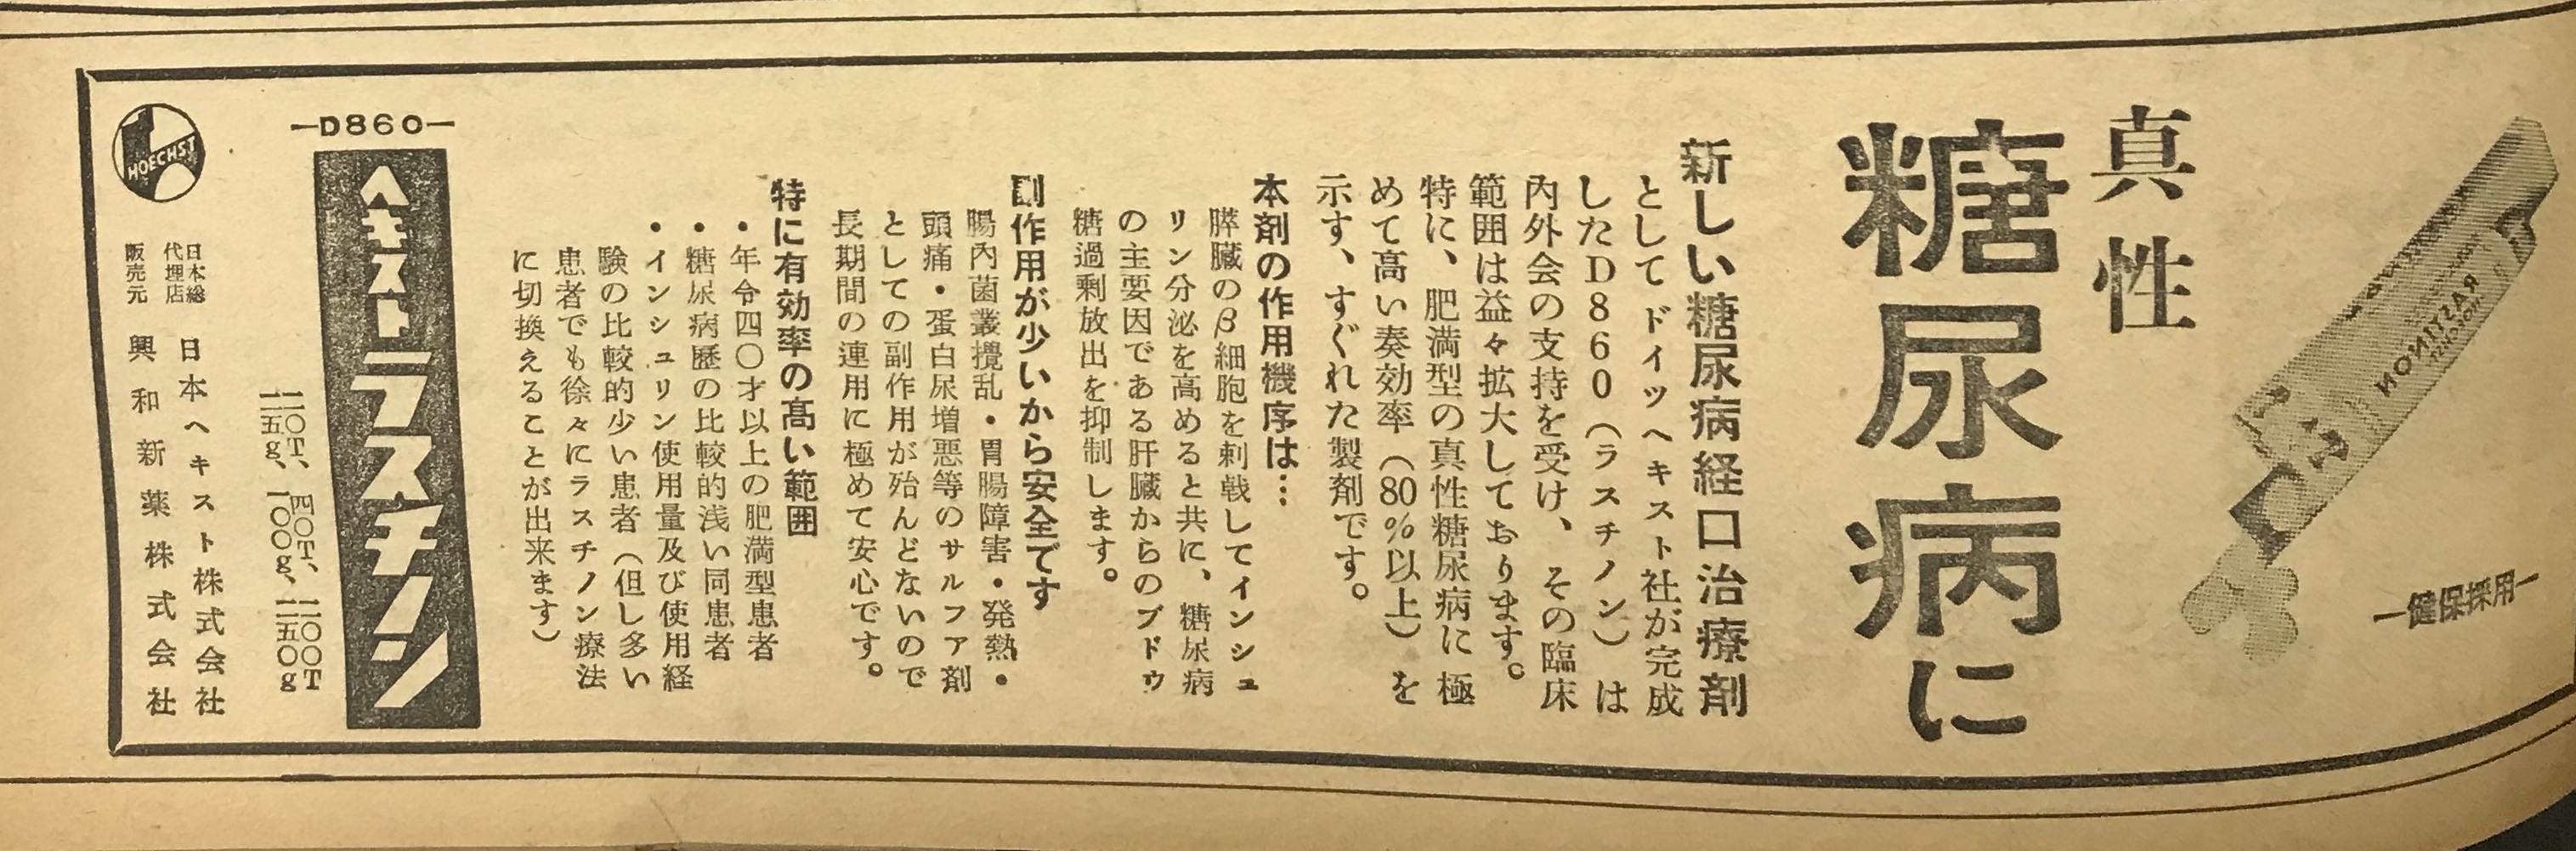 RASTINON
HOECHST
—健保採用—
真性
糖尿病に
新しい糖尿病経口治療剤
としてドイツヘキスト社が完成
したD860（ラスチノン）は
内外会の支持を受け、その臨床
範囲は益々拡大しております。
特に、肥満型の真性糖尿病に極
めて高い奏効率（80%以上）を
示す、すぐれた製剤です。
本剤の作用機序は…
膵臓のβ細胞を刺戟してインシュ
リン分泌を高めると共に、糖尿病
の主要因である肝臓からのブドウ
糖過剰放出を抑制します。
副作用が少いから安全です
腸内菌叢攪乱・胃腸障害・発熱・
頭痛・蛋白尿増悪等のサルファ剤
としての副作用が殆んどないので
長期間の連用に極めて安心です。
特に有効率の高い範囲
・年令四〇才以上の肥満型患者
・糖尿病歴の比較的浅い同患者
・インシュリン使用量及び使用経
験の比較的少い患者（但し多い
患者でも徐々にラスチノン療法
に切換えることが出来ます）
—D860—
ヘキストラスチノン
二〇T、四〇T、二〇〇T
二五g、一〇〇g、二五〇g
HOECHST
日本総代理店 日本ヘキスト株式会社
販売元 興和新薬株式会社